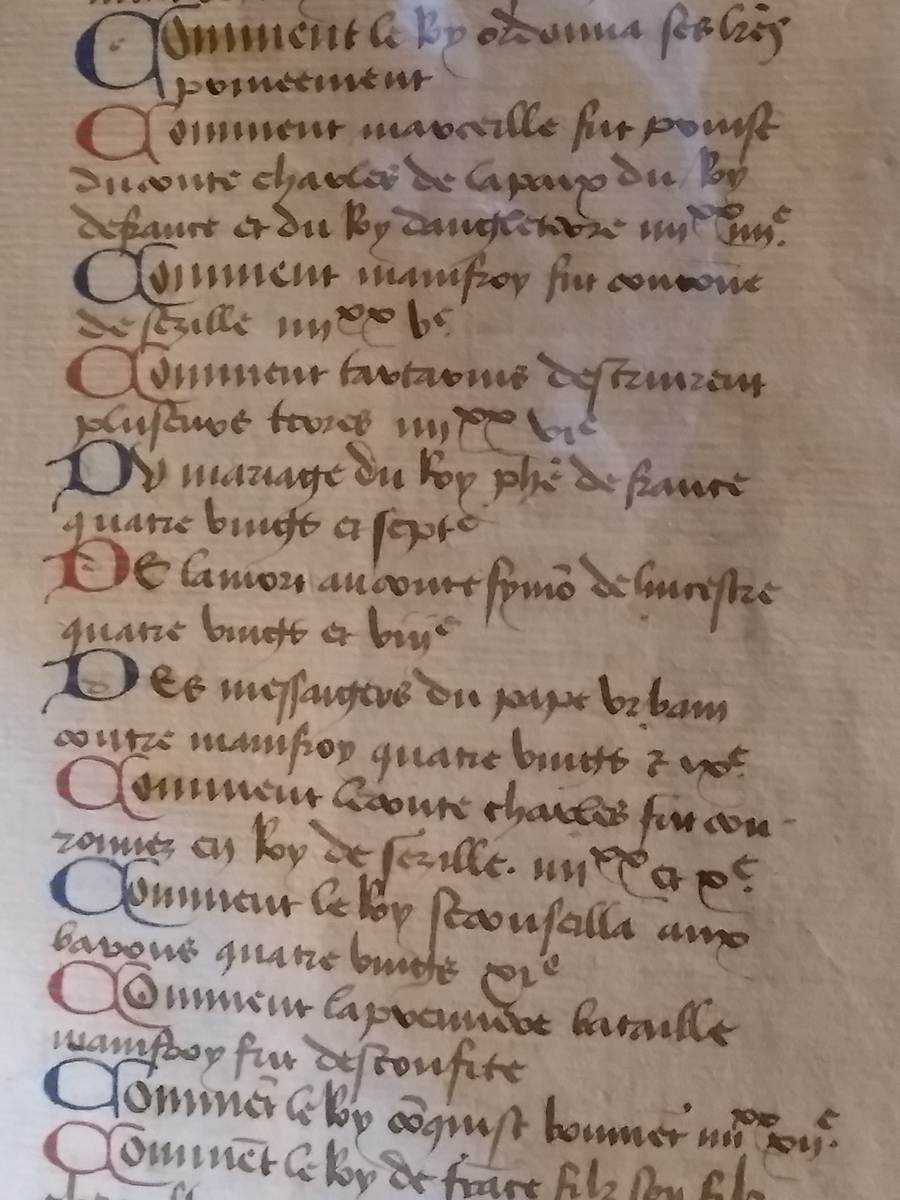 Comment le Roy ordonna ses
Comment marceille fut prinse
du conte charles de la paix du Roy
de france et du Roy dangleterre iiiixx iiiie.
Comment mainfroy fut couronne
de sezille iiiixx ve.
Comment tartarins destruirent
pluseurs terres iiiixx vie
DV mariage du Roy phe de france
quatre vingts et septe
DE la mort au conte symõ de lincestre
quatre vingts et viiie
DEs messaigers du pape vrbain
contre mainfroy quatre vingts ⁊ ixe.
Comment le conte charles fut cou-
ronnez en Roy de sezille. iiiixx et xe.
Comment le Roy se conseilla aux
barons quatre vingts xie
Comment la premiere bataille
mainfroy fut desconfite
Commẽt le Roy cõquist iiiixx xiie.
Commẽt le Roy de frãce filz